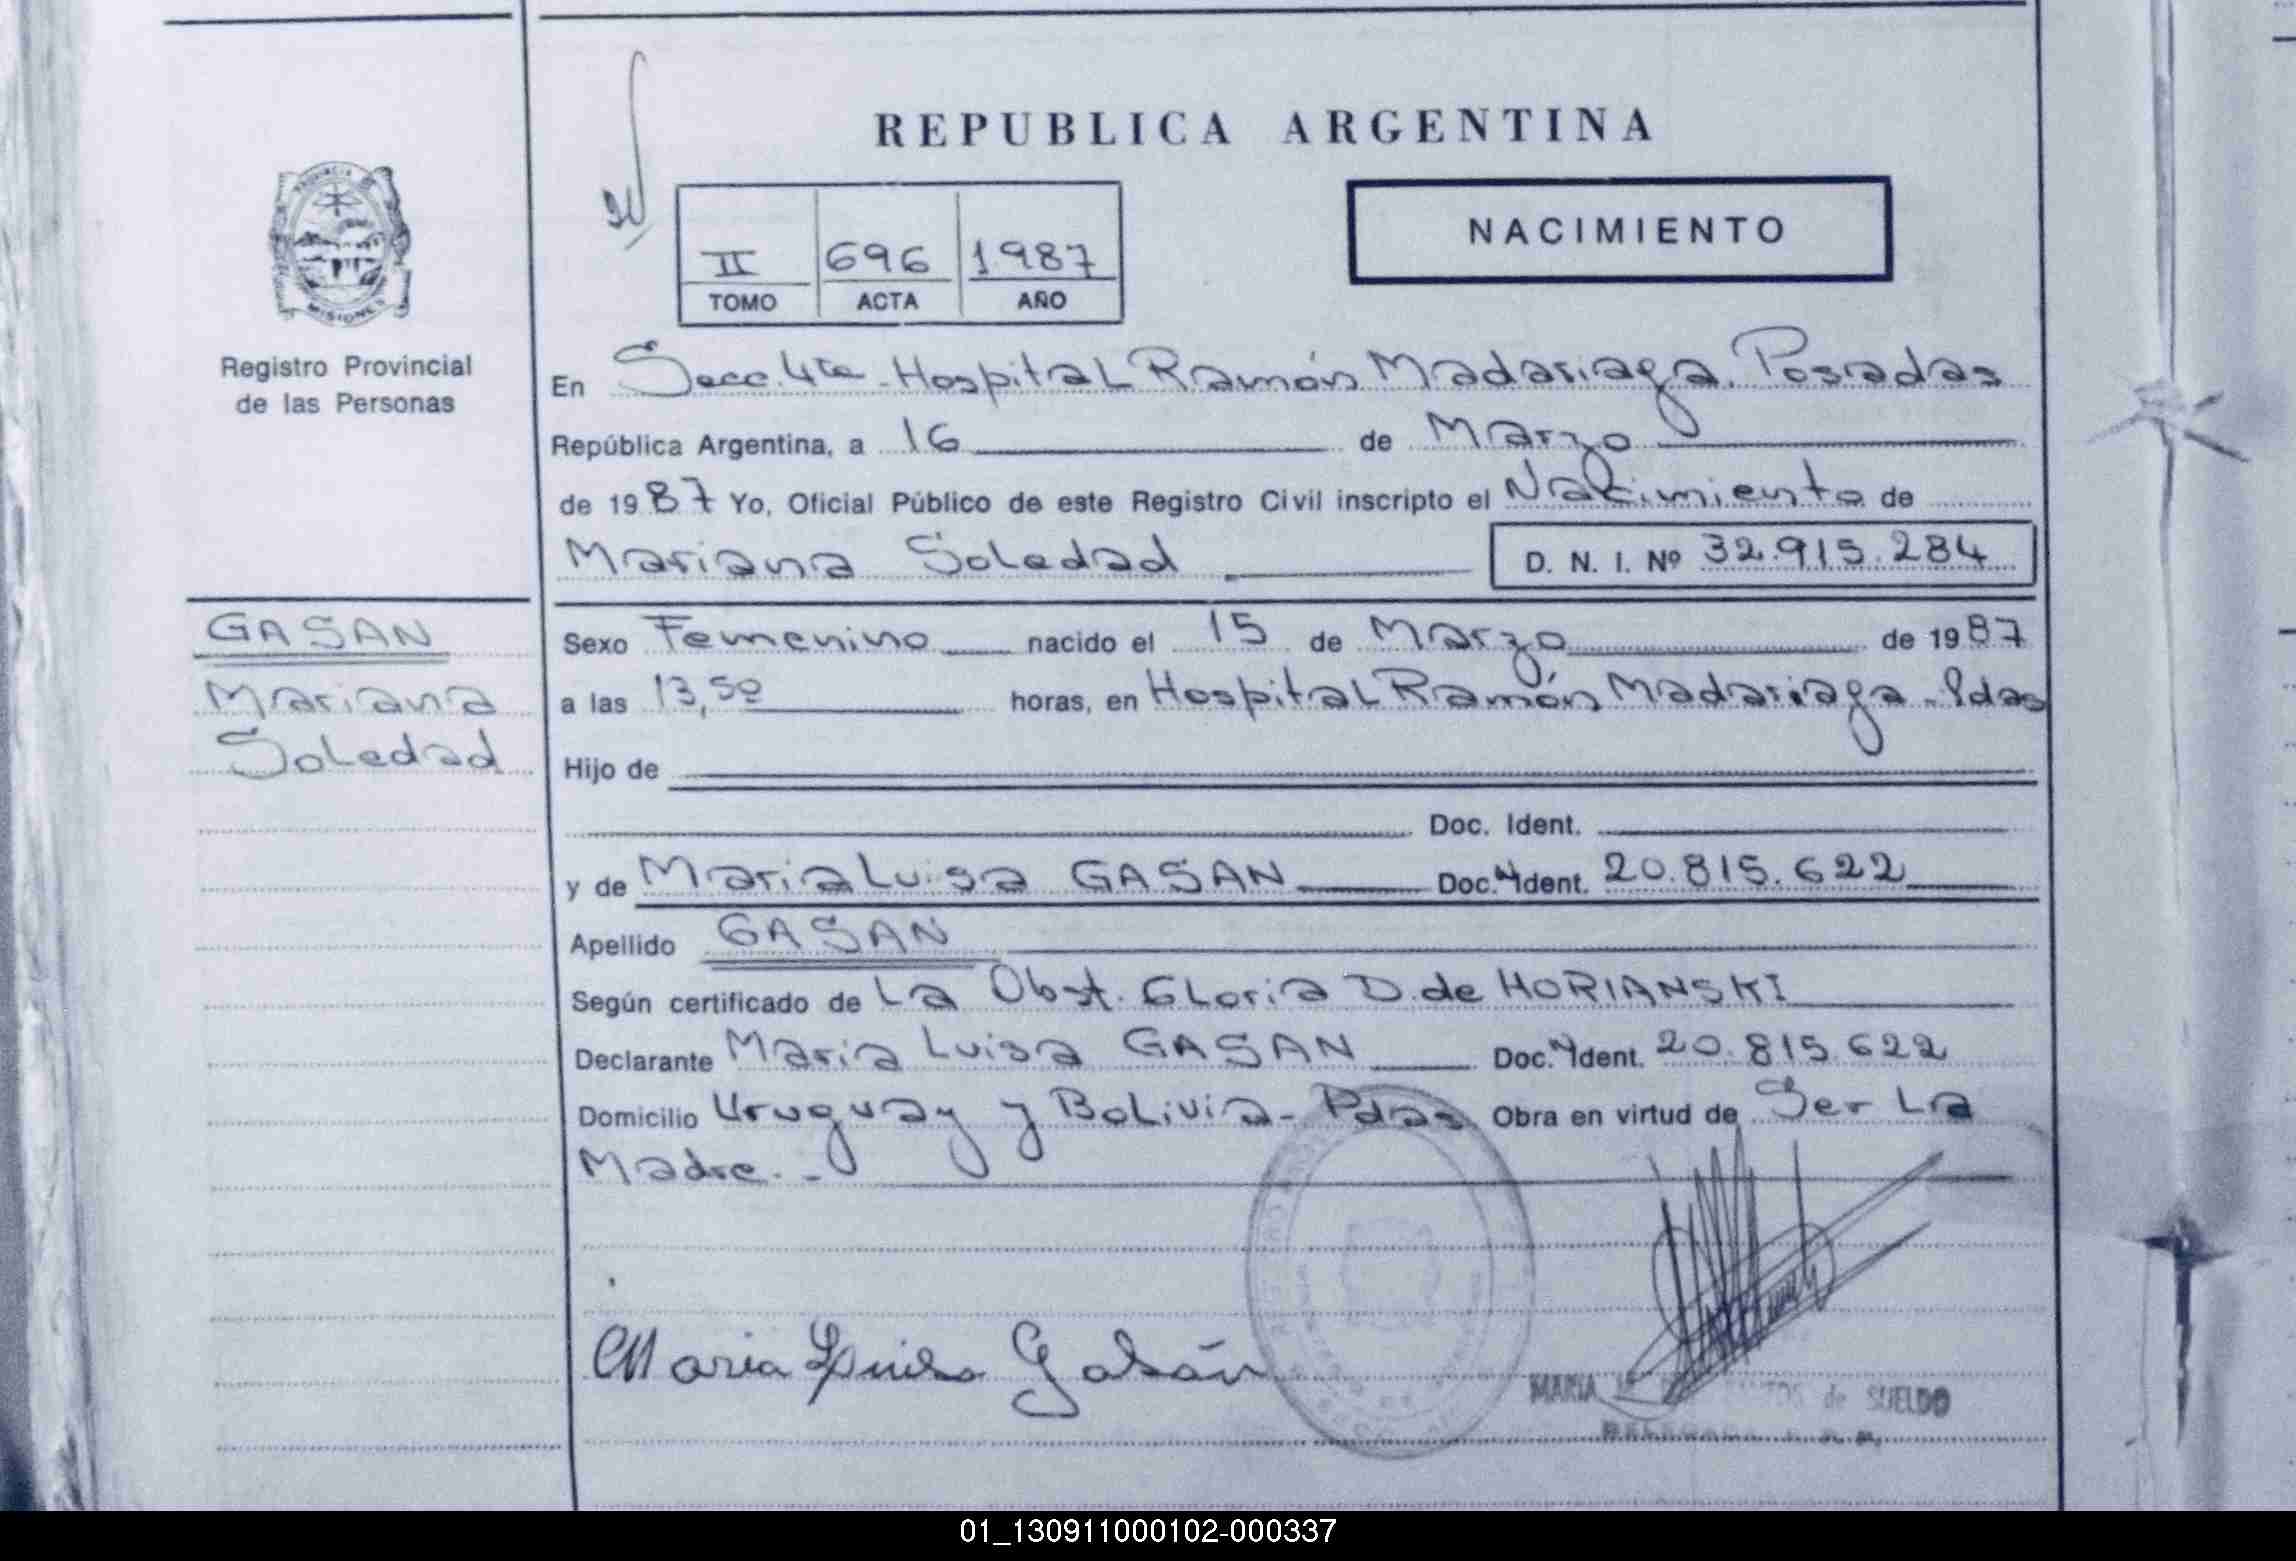 REPUBLICA ARGENTINA
NACIMIENTO
II 696 1987
TOMO ACTA AÑO
PROVINCIA DE
MISIONES
Registro Provincial
de las Personas
En Secc. 4ta - Hospital Ramón Madariaga. Posadas
República Argentina, a 16 de Marzo
de 1987 Yo, Oficial Público de este Registro Civil inscripto el Nacimiento de
Mariana Soledad D. N. I. Nº 32.915.284
GASAN
Mariana
Soledad
Sexo Femenino nacido el 15 de Marzo de 1987
a las 13,50 horas, en Hospital Ramón Madariaga - Pdas
Hijo de
Doc. Ident.
y de Maria Luisa GASAN Doc. Ident. 20.815.622
Apellido GASAN
Según certificado de La Obst. Gloria D. de HORIANSKI
Declarante Maria Luisa GASAN Doc. Ident. 20.815.622
Domicilio Uruguay y Bolivia - Pdas Obra en virtud de Ser La
Madre. -
Maria Luisa Gasán
MARIA de SUELDO
01_130911000102-000337